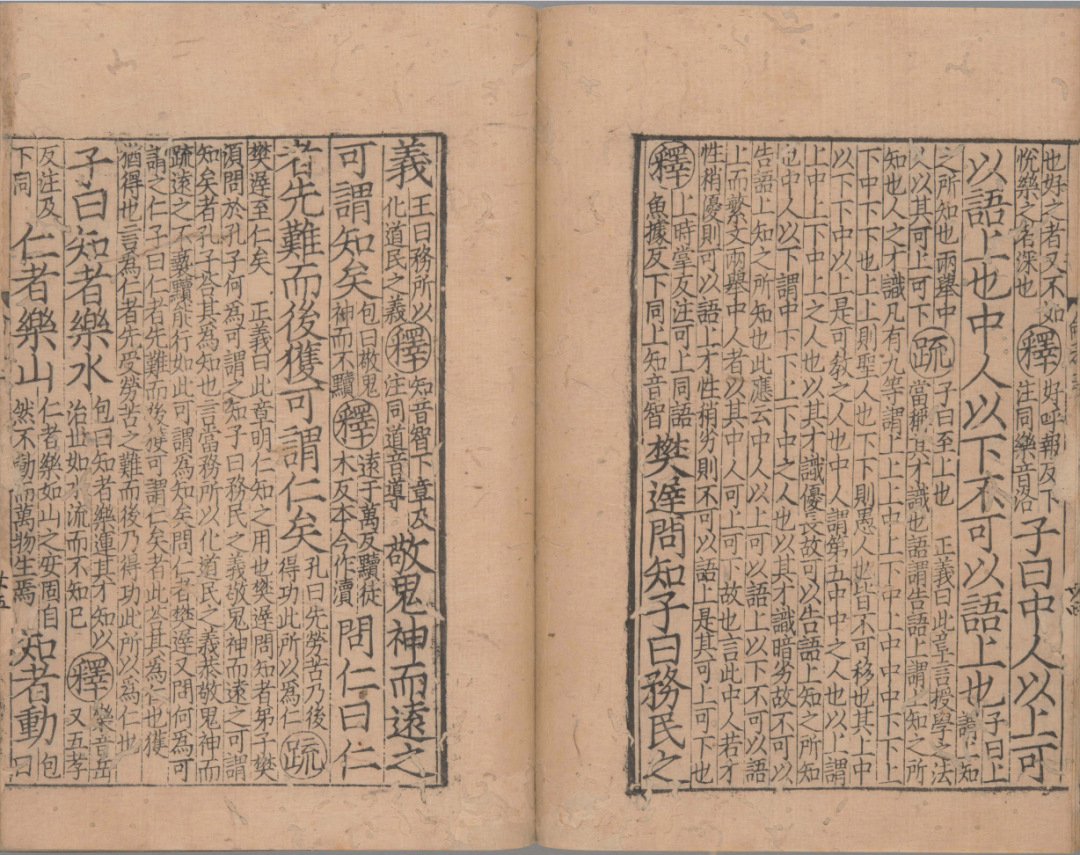 也好之者又不如
悅樂之名深也
釋
好呼報反下
注同樂音洛
子曰中人以上可
以語上也中人以下不可以語上也
曰上
謂上知
之所知也兩舉中
人以其可上可下
疏
子曰至上也　正義曰此章言授學之法
當稱其才識也語謂告語上謂上知之所
知也人之才識凡有九等謂上上上中上下中上中中中下下上
下中下下也上上則聖人也下下則愚人也皆不可移也其上中
以下下中以上是可教之人也中人謂第五中中之人也以上謂
上中上下中上之人也以其才識優長故可以告語上知之所知
也中人以下謂中下下上下中之人也以其才識暗劣故不可以
告語上知之所知也此應云中人以上可以語上以下不可以語
上而繁文兩舉中人者以其中人可上可下故也言此中人若才
性稍優則可以語上才性稍劣則不可以語上是其可上可下也
釋
上時掌反注可上同語
魚據反下同上知音智
樊遲問知子曰務民之
義
王曰務所以
化道民之義
釋
知音智下章及
注同道音導
敬鬼神而遠之
可謂知矣
包曰敬鬼
神而不黷
釋
遠于萬反黷徒
木反本今作瀆
問仁曰仁
者先難而後獲可謂仁矣
孔曰先勞苦乃後
得功此所以為仁
疏
樊遲至仁矣　正義曰此章明仁知之用也樊遲問知者弟子樊
須問於孔子何為可謂之知子曰務民之義敬鬼神而遠之可謂
知矣者孔子荅其為知也言當務所以化道民之義恭敬鬼神而
疏遠之不褻黷能行如此可謂為知矣問仁者樊遲又問何為可
謂之仁子曰仁者先難而後獲可謂仁矣者此荅其為仁也獲
猶得也言為仁者先受勞苦之難而後乃得功此所以為仁也
子曰知者樂水
包曰知者樂運其才知以
治世如水流而不知已
釋
樂音岳
又五孝
反注及
下同
仁者樂山
仁者樂如山之安固自
然不動而萬物生焉
知者動
包
曰
廿五